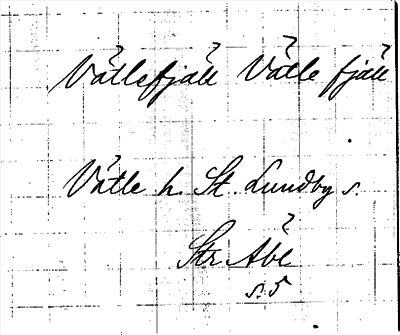 Vättlefjäll Vättle fjäll
Vättle h. St. Lundby s.
Str Abl
s. 5